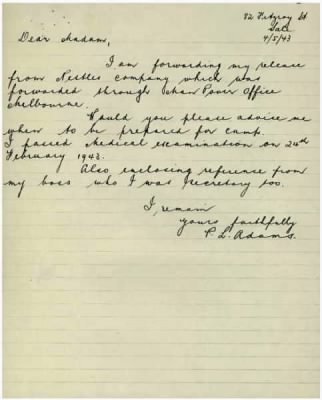 82 Fitzroy St
Sale
4/5/43
Dear Madam,
I am forwarding my release
from Nestles company which was
forwarded through Man Power Office
Melbourne.
Would you please advise me
when to be prepared for camp.
I passed Medical examination on 24th
February 1943.
Also enclosing reference from
my boss who I was secretary too.
I, remain
yours faithfully
P. L. Adams.